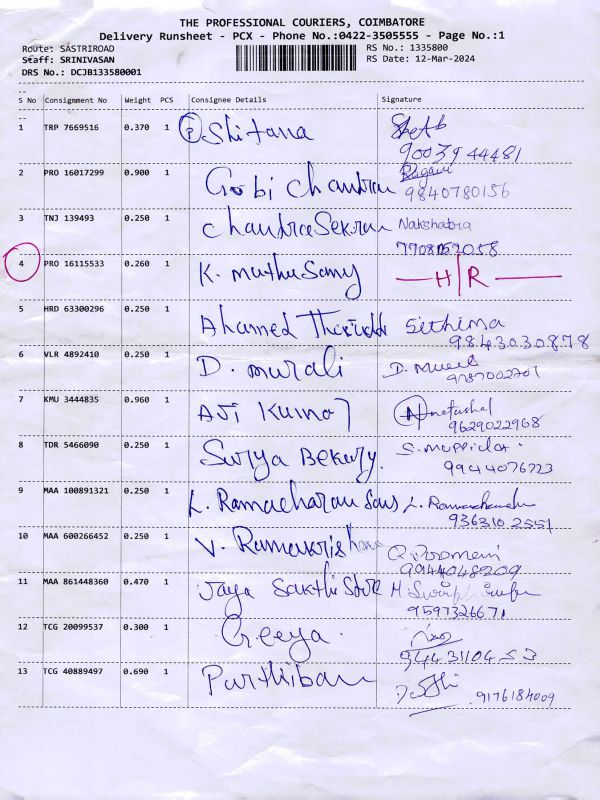 THE PROFESSIONAL COURIERS, COIMBATORE
Delivery Runsheet - PCX - Phone No.:0422-3505555 - Page No.:1
Route: SASTRIROAD RS No.: 1335800
Staff: SRINIVASAN RS Date: 12-Mar-2024
DRS No.: DCJB133580001
S No Consignment No Weight PCS Consignee Details Signature
1 TRP 7669516 0.370 1 Shifana
90039 44481
2 PRO 16017299 0.900 1 Gobi Chandran
9840780156
3 TNJ 139493 0.250 1 ChandraSekran Nakshatra
4 PRO 16115533 0.260 1 K. muthuSamy H/R
5 HRD 63300296 0.250 1 Ahamed Sithima
9843030878
6 VLR 4892410 0.250 1 D. murali D.
7 KMU 3444835 0.960 1 AJi Kumar
9629022968
8 TDR 5466090 0.250 1 Surya Bekery. S.
9944076723
9 MAA 100891321 0.250 1 L. Ramacharan Sons L.
936310 2551
10 MAA 600266452 0.250 1 V.
9944048209
11 MAA 861448360 0.470 1 Jaya Sakthi Store M
9597326671
12 TCG 20099537 0.300 1 Geeya.
9443110453
13 TCG 40889497 0.690 1 Parthiban
9176184009